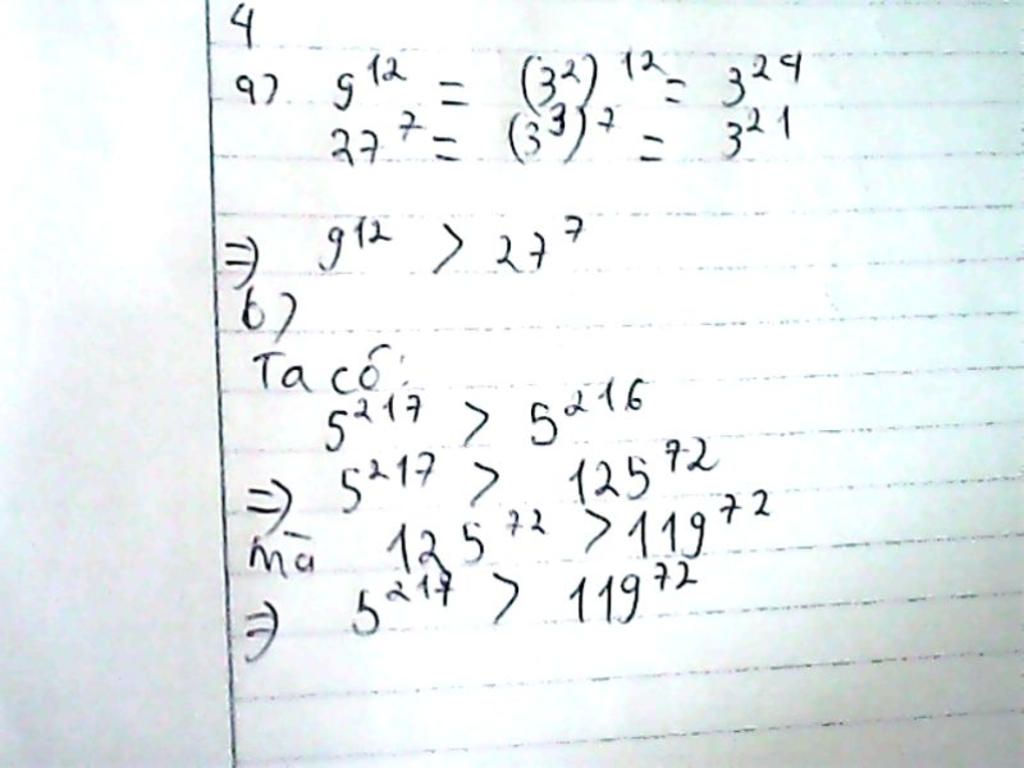 4
a) 9^12 = (3^2)^12 = 3^24
27^7 = (3^3)^7 = 3^21
=> 9^12 > 27^7
b)
Ta có:
5^217 > 5^216
=> 5^217 > 125^72
mà 125^72 > 119^72
=> 5^217 > 119^72